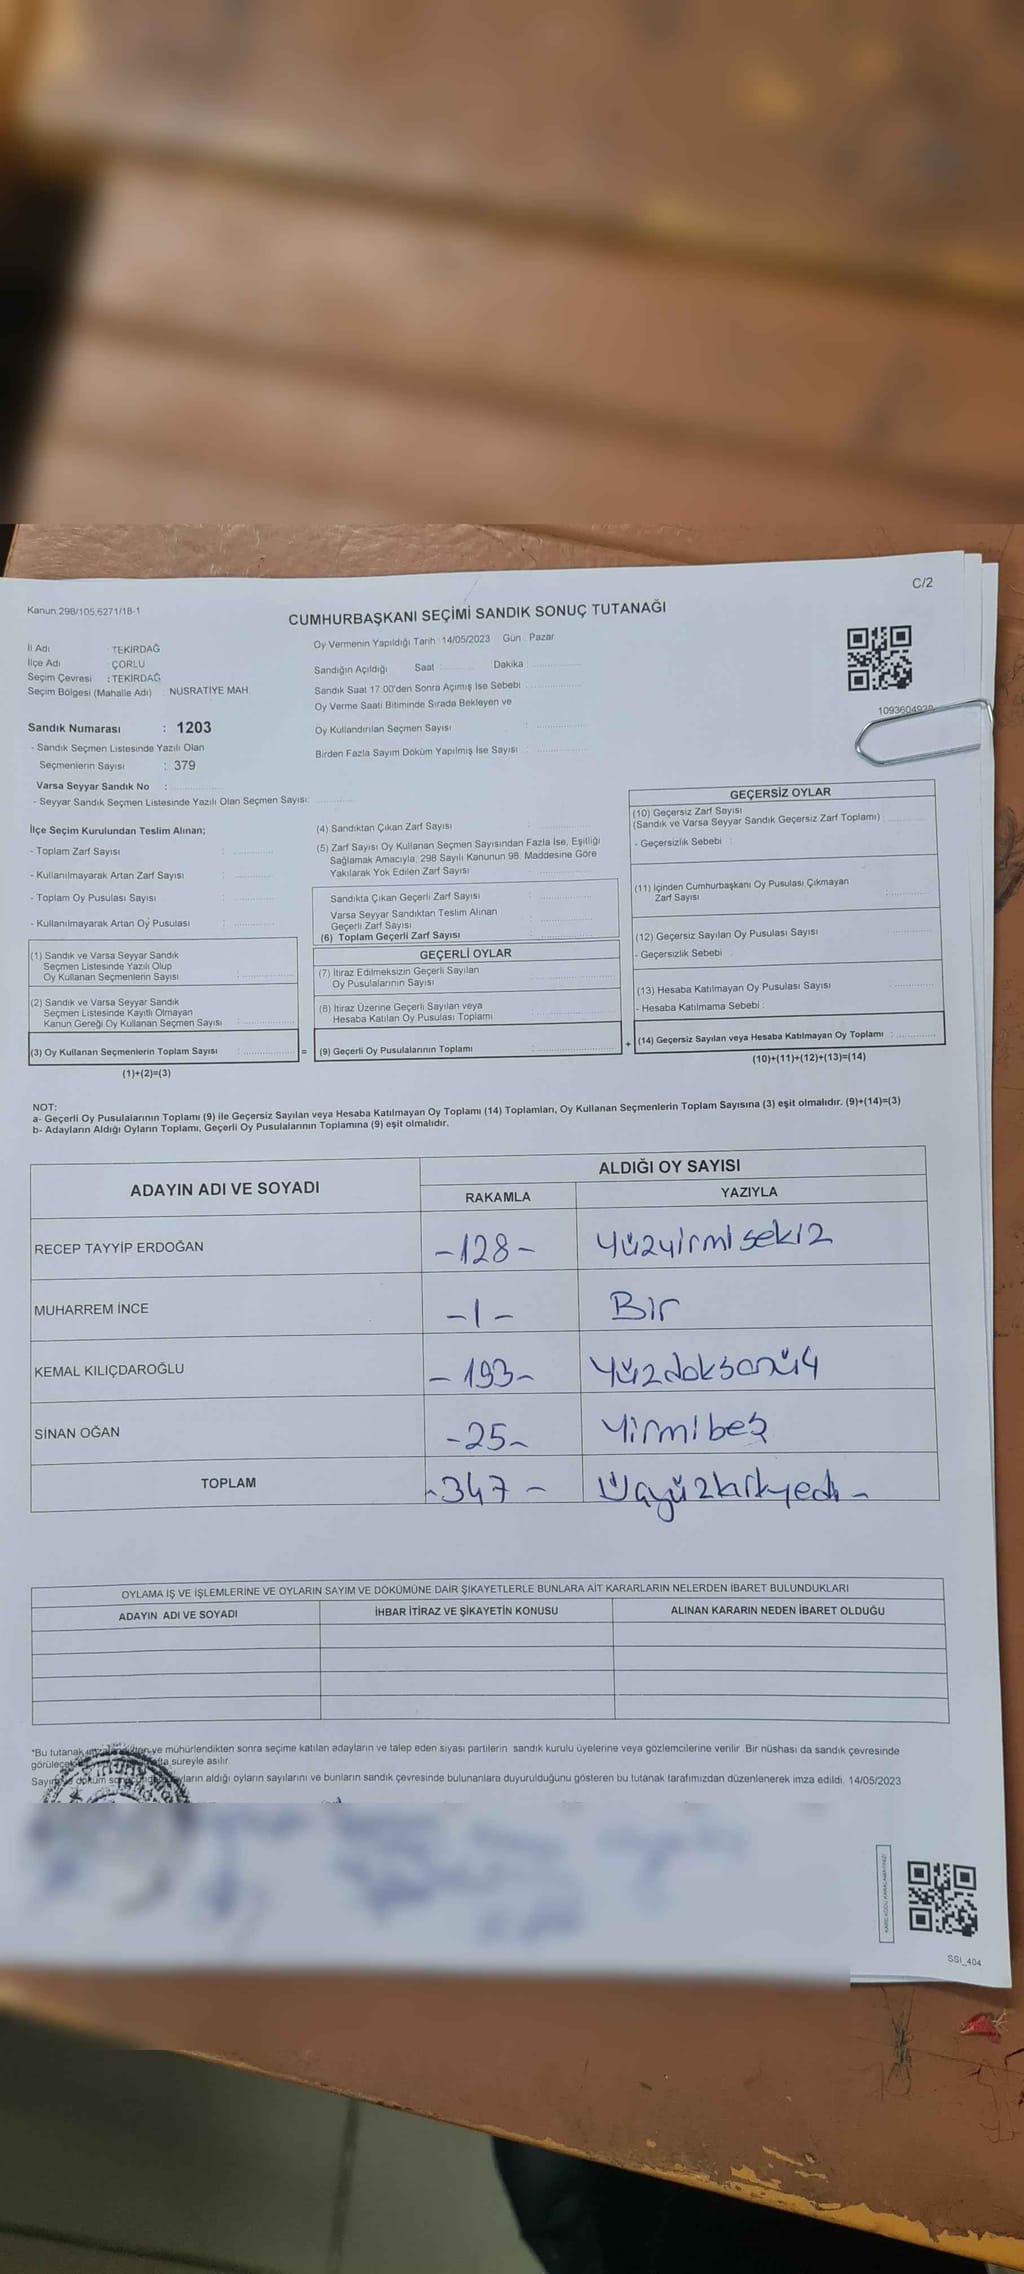 C/2
Kanun:298/105,6271/18-1
CUMHURBAŞKANI SEÇİMİ SANDIK SONUÇ TUTANAĞI
İl Adı : TEKİRDAĞ
İlçe Adı : ÇORLU
Seçim Çevresi : TEKİRDAĞ
Seçim Bölgesi (Mahalle Adı) : NUSRATİYE MAH.
Oy Vermenin Yapıldığı Tarih :14/05/2023 Gün : Pazar
Sandığın Açıldığı Saat : Dakika :
Sandık Saat 17.00'den Sonra Açımış İse Sebebi :
Oy Verme Saati Bitiminde Sırada Bekleyen ve
Oy Kullandırılan Seçmen Sayısı :
Birden Fazla Sayım Döküm Yapılmış İse Sayısı :
Sandık Numarası : 1203
- Sandık Seçmen Listesinde Yazılı Olan
Seçmenlerin Sayısı : 379
Varsa Seyyar Sandık No :
- Seyyar Sandık Seçmen Listesinde Yazılı Olan Seçmen Sayısı:
İlçe Seçim Kurulundan Teslim Alınan;
- Toplam Zarf Sayısı :
- Kullanılmayarak Artan Zarf Sayısı :
- Toplam Oy Pusulası Sayısı :
- Kullanılmayarak Artan Oy Pusulası :
(1) Sandık ve Varsa Seyyar Sandık
Seçmen Listesinde Yazılı Olup
Oy Kullanan Seçmenlerin Sayısı :
(2) Sandık ve Varsa Seyyar Sandık
Seçmen Listesinde Kayıtlı Olmayan
Kanun Gereği Oy Kullanan Seçmen Sayısı :
(3) Oy Kullanan Seçmenlerin Toplam Sayısı :
(1)+(2)=(3)
(4) Sandıktan Çıkan Zarf Sayısı :
(5) Zarf Sayısı Oy Kullanan Seçmen Sayısından Fazla İse, Eşitliği
Sağlamak Amacıyla, 298 Sayılı Kanunun 98. Maddesine Göre
Yakılarak Yok Edilen Zarf Sayısı :
Sandıkta Çıkan Geçerli Zarf Sayısı :
Varsa Seyyar Sandıktan Teslim Alınan
Geçerli Zarf Sayısı :
(6) Toplam Geçerli Zarf Sayısı :
GEÇERLİ OYLAR
(7) İtiraz Edilmeksizin Geçerli Sayılan
Oy Pusulalarının Sayısı :
(8) İtiraz Üzerine Geçerli Sayılan veya
Hesaba Katılan Oy Pusulası Toplamı :
= (9) Geçerli Oy Pusulalarının Toplamı :
GEÇERSİZ OYLAR
(10) Geçersiz Zarf Sayısı
(Sandık ve Varsa Seyyar Sandık Geçersiz Zarf Toplamı) :
- Geçersizlik Sebebi :
(11) İçinden Cumhurbaşkanı Oy Pusulası Çıkmayan
Zarf Sayısı :
(12) Geçersiz Sayılan Oy Pusulası Sayısı :
- Geçersizlik Sebebi :
(13) Hesaba Katılmayan Oy Pusulası Sayısı :
- Hesaba Katılmama Sebebi :
+ (14) Geçersiz Sayılan veya Hesaba Katılmayan Oy Toplamı :
(10)+(11)+(12)+(13)=(14)
NOT:
a- Geçerli Oy Pusulalarının Toplamı (9) ile Geçersiz Sayılan veya Hesaba Katılmayan Oy Toplamı (14) Toplamları, Oy Kullanan Seçmenlerin Toplam Sayısına (3) eşit olmalıdır. (9)+(14)=(3)
b- Adayların Aldığı Oyların Toplamı, Geçerli Oy Pusulalarının Toplamına (9) eşit olmalıdır.
ADAYIN ADI VE SOYADI
ALDIĞI OY SAYISI
RAKAMLA YAZIYLA
RECEP TAYYİP ERDOĞAN -128- Yüzyirmisekiz
MUHARREM İNCE -1- Bir
KEMAL KILIÇDAROĞLU -193- Yüzdoksanüç
SİNAN OĞAN -25- Yirmibeş
TOPLAM -347- Üçyüzkırkyedi-
OYLAMA İŞ VE İŞLEMLERİNE VE OYLARIN SAYIM VE DÖKÜMÜNE DAİR ŞİKAYETLERLE BUNLARA AİT KARARLARIN NELERDEN İBARET BULUNDUKLARI
ADAYIN ADI VE SOYADI İHBAR İTİRAZ VE ŞİKAYETİN KONUSU ALINAN KARARIN NEDEN İBARET OLDUĞU
*Bu tutanak ve mühürlendikten sonra seçime katılan adayların ve talep eden siyasi partilerin sandık kurulu üyelerine veya gözlemcilerine verilir. Bir nüshası da sandık çevresinde
süreyle asılır.
Sayım ve döküm aldığı oyların sayılarını ve bunların sandık çevresinde bulunanlara duyurulduğunu gösteren bu tutanak tarafımızdan düzenlenerek imza edildi. 14/05/2023
SSI_404